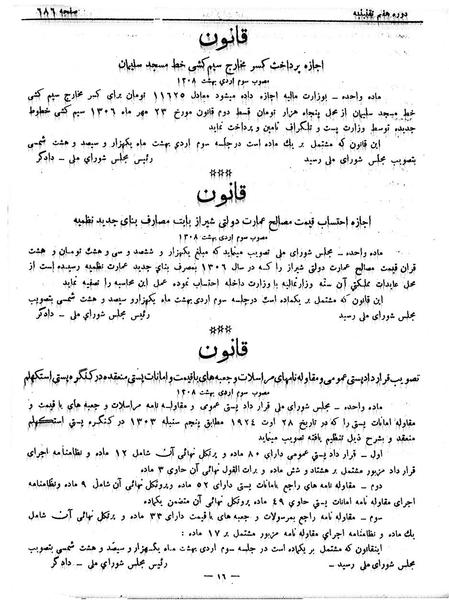 دوره هفتم تقنینیه
صفحه ٦٨٦
قانون
اجازه پرداخت کسر مخارج سیم کشی خط مسجد سلیمان
مصوب سوم اردی بهشت ۱۳۰۸
ماده واحده ـ بوزارت مالیه اجازه داده میشود معادل ۱۱٦۲۵ تومان برای کسر مخارج سیم کشی
خط مسجد سلیمان از محل پنجاه هزار تومان قسط دوم قانون مورخ ۲۳ مهر ماه ۱۳۰٦ سیم کشی خطوط
جدیده توسط وزارت پست و تلگراف تامین و پرداخت نماید
این قانون که مشتمل بر یك ماده است درجلسه سوم اردی بهشت ماه یکهزار و سیصد و هشت شمسی
بتصویب مجلس شورای ملی رسید
رئیس مجلس شورای ملی ـ دادگر
***
قانون
اجازه احتساب قیمت مصالح عمارت دولتی شیراز بابت مصارف بنای جدید نظمیه
مصوب سوم اردی بهشت ۱۳۰۸
ماده واحده ـ مجلس شورای ملی تصویب مینماید که مبلغ یکهزار و ششصد و سی و هشت تومان و هشت
قران قیمت مصالح عمارت دولتی شیراز را که در سال ۱۳۰٦ بمصرف بنای جدید عمارت نظمیه رسیده است از
محل عایدات مملکتی آن سنه وزارتمالیه با وزارت داخله احتساب نموده عمل این محاسبه را تصفیه نماید
این قانون که مشتمل بر یکماده است درجلسه سوم اردی بهشت ماه یکهزار و سیصد و هشت شمسی بتصویب
مجلس شورای ملی رسید ـ
رئیس مجلس شورای ملی ـ دادگر
***
قانون
تصویب قرارداد پستی عمومی و مقاوله نامهای مراسلات و جعبه های با قیمت و امانات پستی منعقده در کنگره پستی استکهلم
مصوب سوم اردی بهشت ۱۳۰۸
ماده واحده ـ مجلس شورای ملی قرار داد پستی عمومی و مقاوله نامه مراسلات و جعبه های با قیمت و
مقاوله نامه امانات پستی را که در تاریخ ۲۸ اوت ۱۹۲٤ مطابق پنجم سنبله ۱۳۰۳ در کنگره پستی استکهلم
منعقد و بشرح ذیل تنظیم یافته تصویب مینماید
اول ـ قرار داد پستی عمومی دارای ۸۰ ماده و پرتکل نهائی آن شامل ۱۲ ماده و نظامنامه اجرای
قرار داد مزبور مشتمل بر هشتاد و شش ماده و پرات الفول نهائی آن حاوی ۳ ماده
دوم ـ مقاوله نامه های راجع بامانات پستی دارای ٥۲ ماده وپرتکل نهائی آن شامل ۹ ماده ونظامنامه
اجرای مقاوله نامه امانات پستی حاوی ٤۹ ماده پروتکل نهائی آن متضمن یکماده
سوم ـ مقاوله نامه راجع بمرسولات و جعبه های با قیمت دارای ۳۳ ماده و پرتکل نهائی آن شامل
یك ماده و نظامنامه اجرای مقاوله نامه مزبور مشتمل بر ۱۷ ماده :
اینقانون که مشتمل بر یکماده است در جلسه سوم اردی بهشت ماه یکهزار و سیصد و هشت شمسی بتصویب
مجلس شورای ملی رسید ـ
رئیس مجلس شورای ملی ـ دادگر
ـ ۱٦ ـ